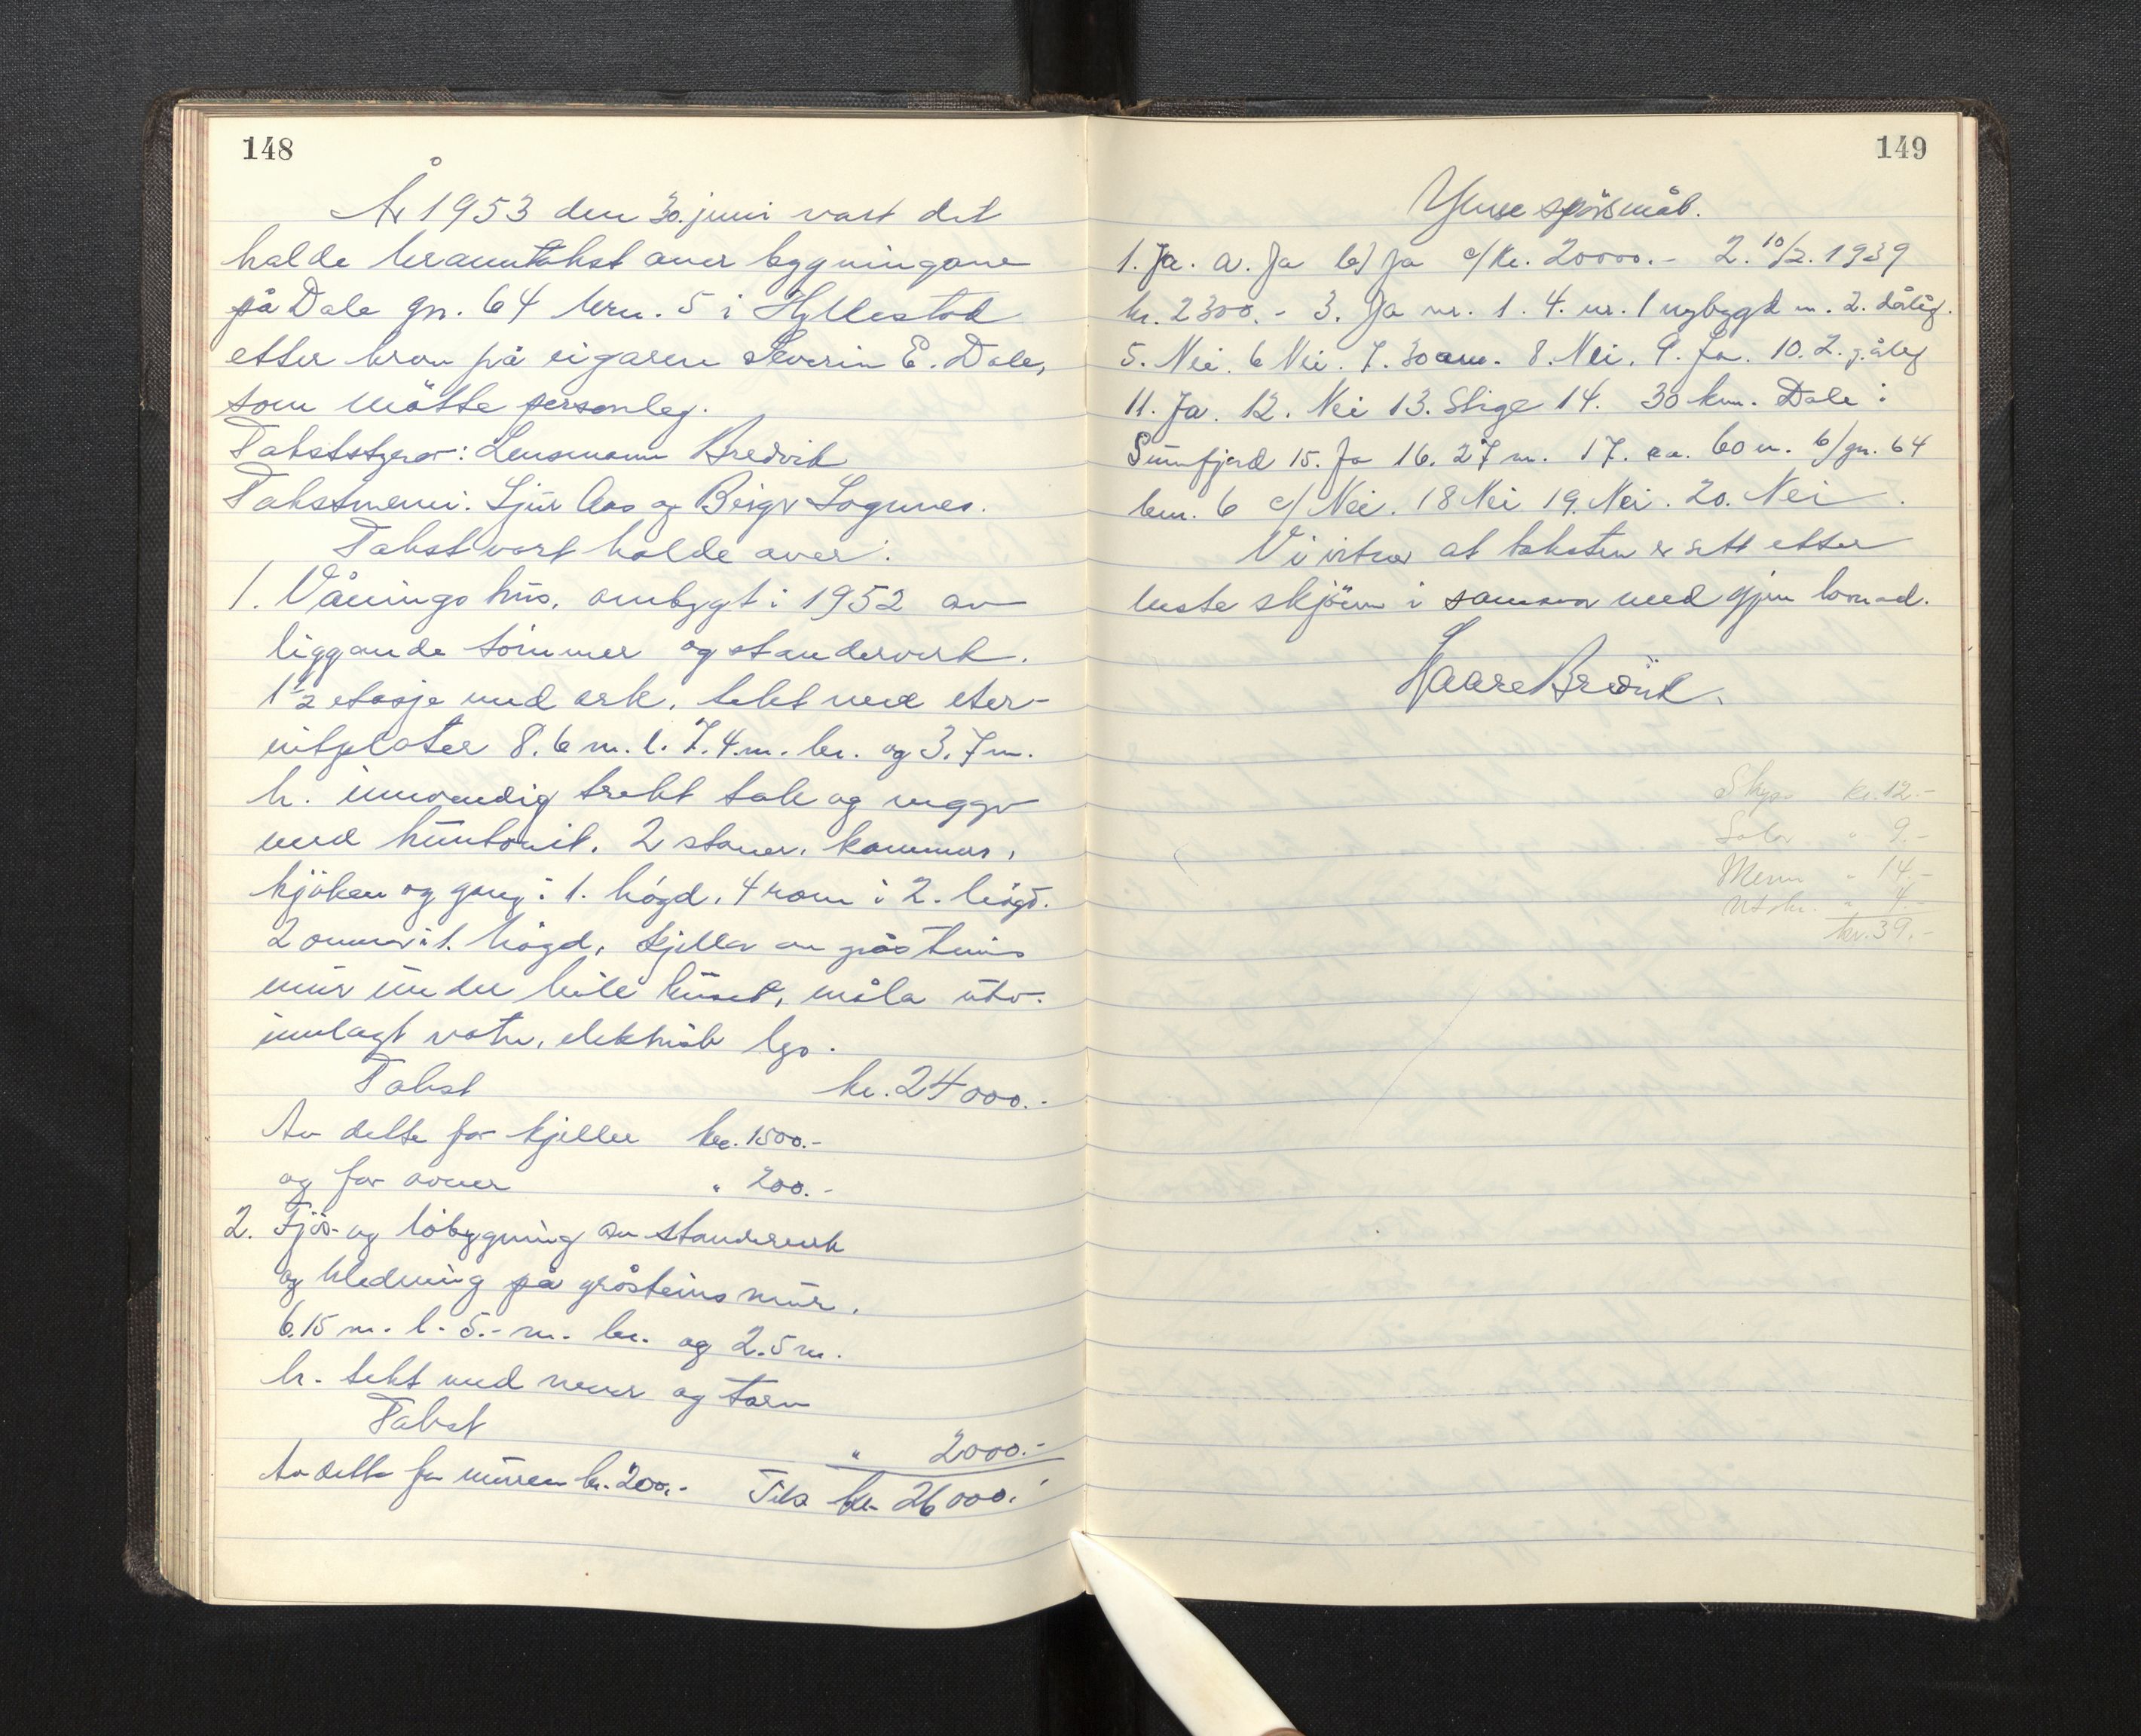 148
År 1953 den 30. juni vart det
halde branntakst over bygningane
på Dale gn. 64 brn. 5 i Hyllestad
etter krav på eigaren Severin E. Dale,
som møtte personleg.
Takststyrar: Lensmann Bredvik
Takstmenn: Sjur Aas og Birger Sognnes.
Takst vart halde over:
1. Våningshus, ombygt i 1952 av
liggande tømmer og standerverk.
1½ etasje med ark, tekt med eter-
nitplater 8.6 m. l. 7.4 m. br. og 3.7 m.
h. innvendig trekt tak og veggr
med huntonit. 2 stover, kammers,
kjøken og gang i 1. høgd. 4 rom i 2. høgd.
2 omnar i 1. høgd, kjellar av gråsteins
mur under heile huset, måla utv.
innlagt vatn, elektrisk lys.
Takst kr. 24000.-
Av dette for kjeller kr. 1500.-
og for ovner " 200.-
2. Fjøs- og løbygning av standerverk
og kledning på gråsteins mur.
6.15 m. l. 5.- m. br. og 2.5 m.
h. tekt med never og torv
Takst " 2000.-
Av dette for muren kr. 200.- Tils kr 26000.-
149
Ymse spørsmål.
1. Ja. a. Ja b) Ja c/ kr. 20000.- 2. 10/2. 1939
kr. 2300.- 3. Ja nr. 1. 4. nr. 1 nybygd n. 2. dårlig.
5. Nei. 6 Nei. 7. 30 cm. 8. Nei. 9. Ja. 10. 2. g. årleg
11. Ja. 12. Nei 13. Stige 14. 30 km. Dale i
Sunnfjord 15. Ja 16. 27 m. 17. ca. 60 m. b/ gn. 64
brn. 6 c/ Nei. 18 Nei 19. Nei. 20. Nei.
Vi vitnar at taksten er sett etter
beste skjønn i samsvar med gjen kostnad.
Kaare Bredvik.
Skyss kr. 12.-
Salær " 9.-
Menn " 14.-
Utskr. " 4.-
kr. 39.-